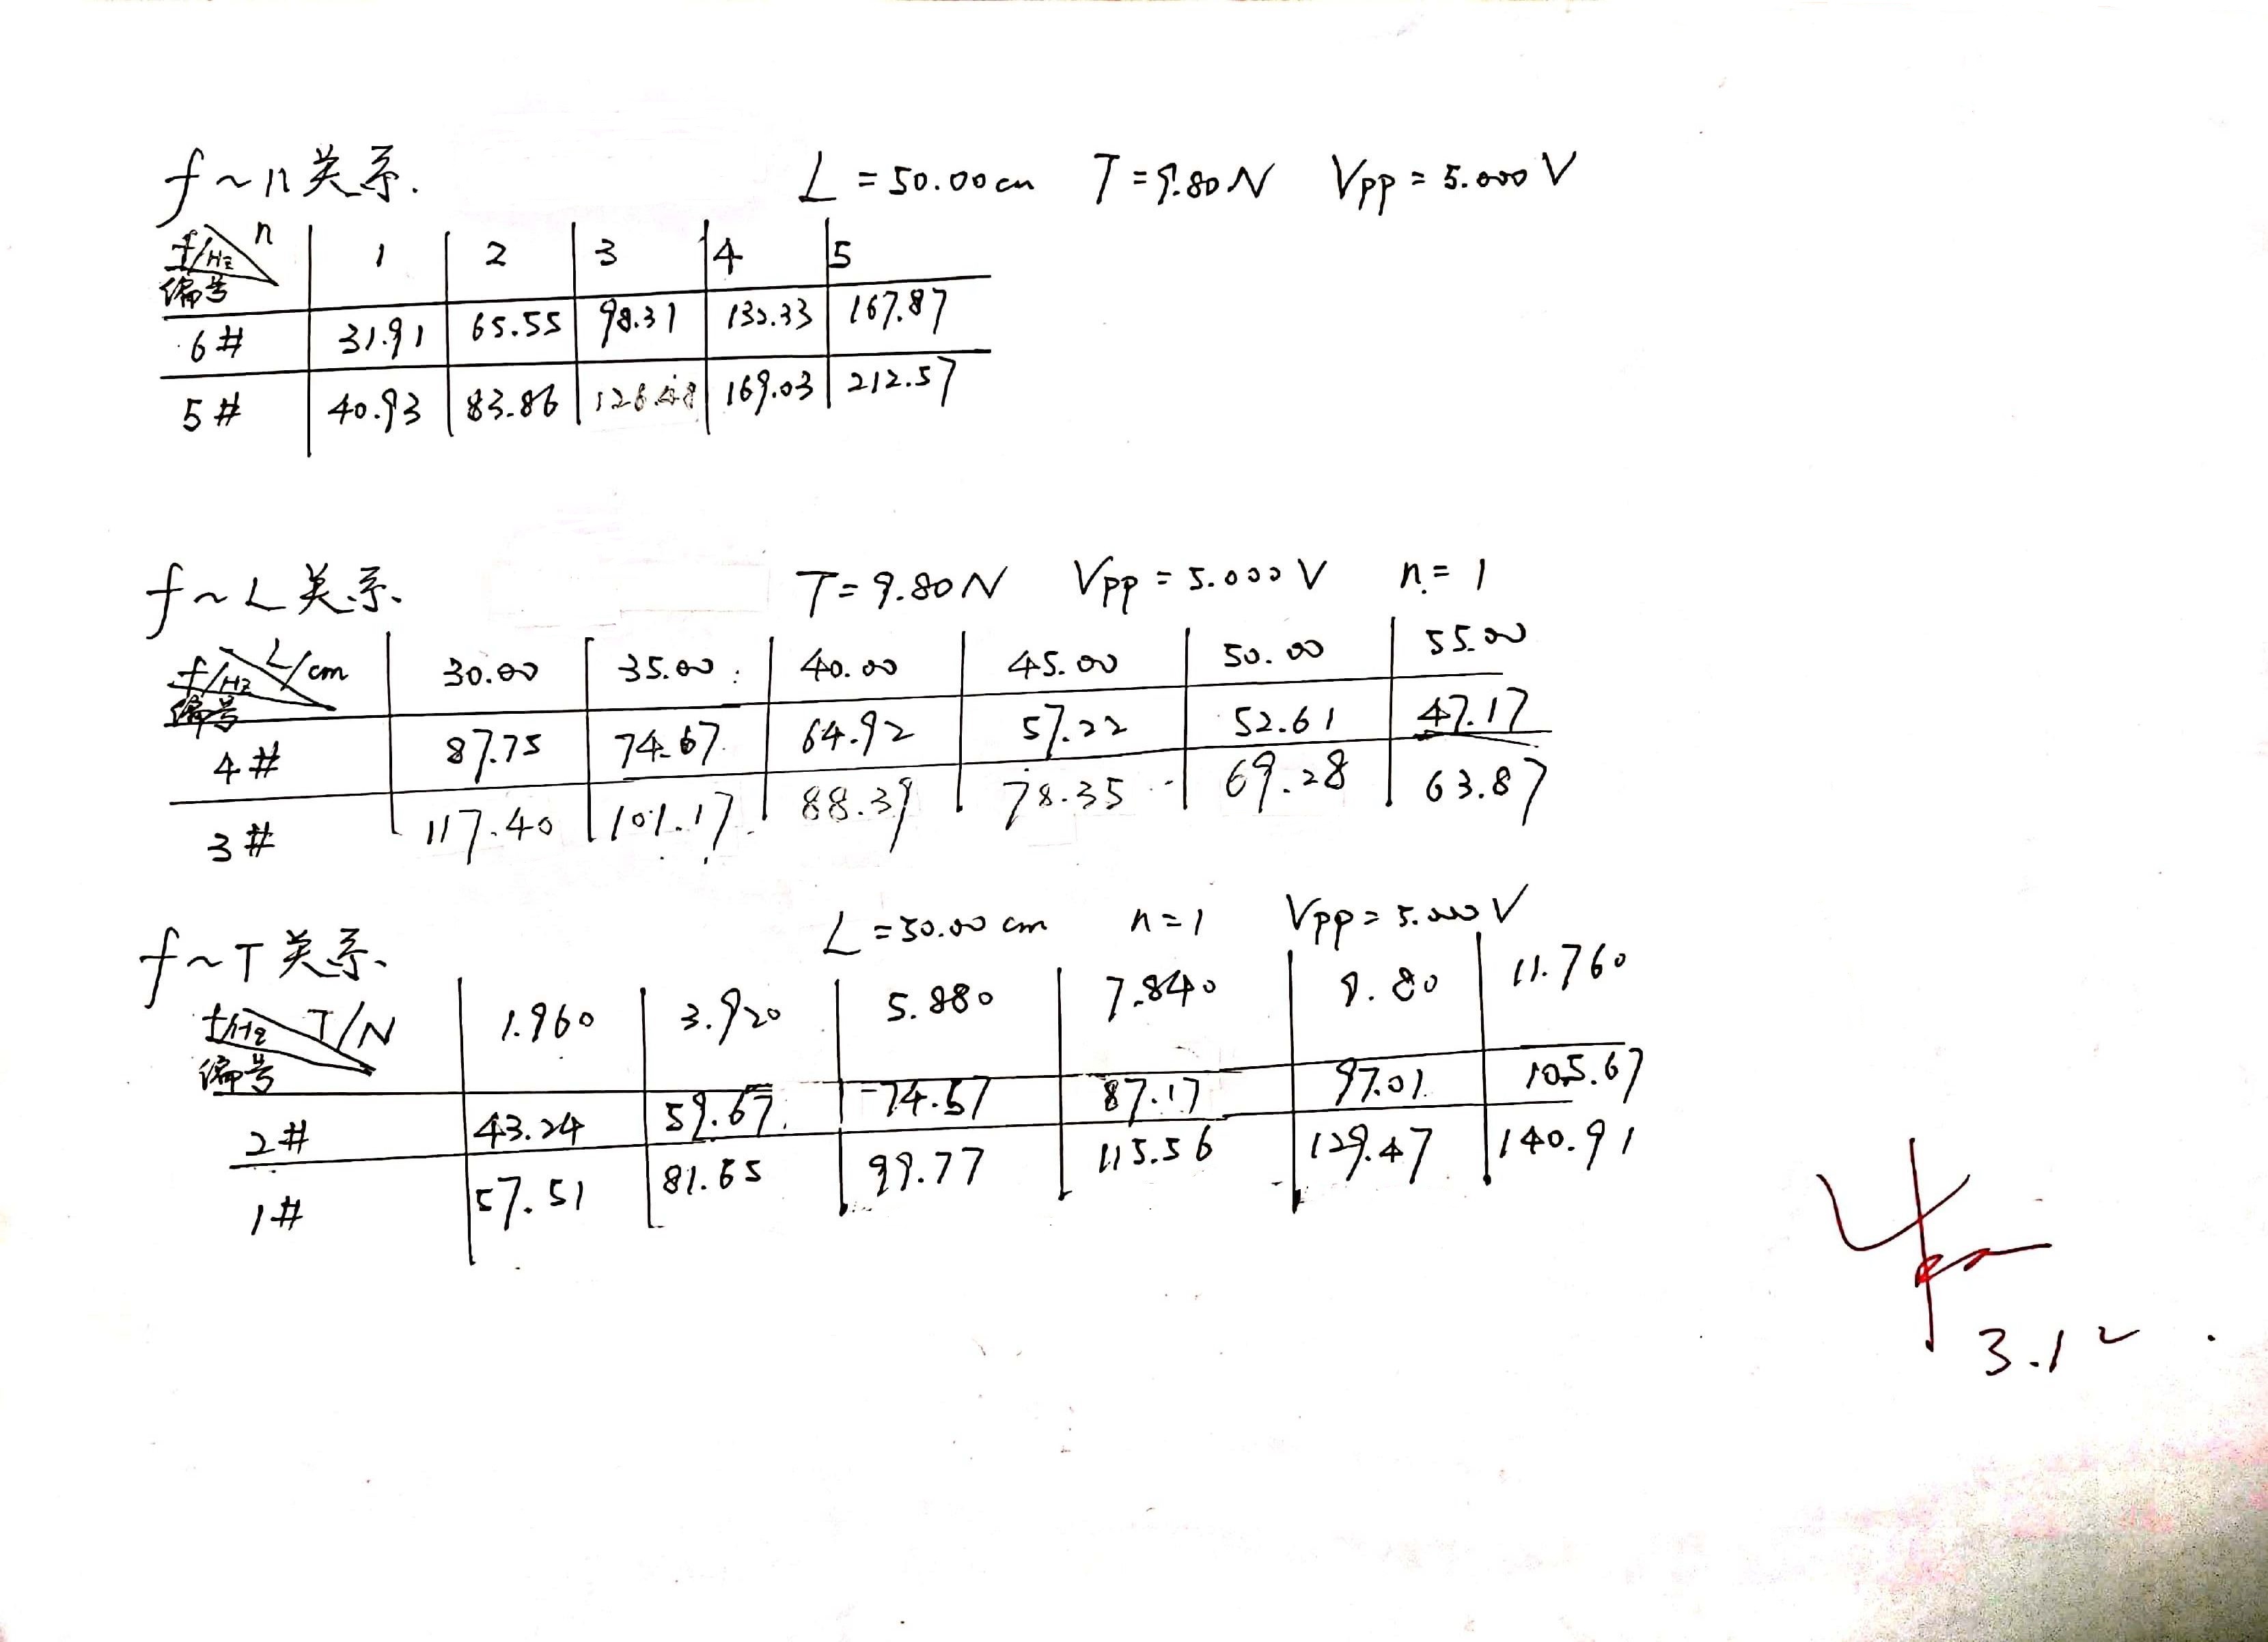 f~n关系. L=50.00cm T=9.80N Vpp=5.000V
f/Hz n 1 2 3 4 5
编号
6# 31.91 65.55 98.31 132.33 167.87
5# 40.93 83.86 126.48 169.03 212.57
f~L关系、 T=9.80N Vpp=5.000V n=1
f/Hz L/cm 30.00 35.00 40.00 45.00 50.00 55.00
编号
4# 87.75 74.67 64.92 57.22 52.61 47.17
3# 117.40 101.17 88.39 78.35 69.28 63.87
f~T关系、 L=50.00cm n=1 Vpp=5.000V
f/Hz T/N 1.960 3.920 5.880 7.840 9.80 11.760
编号
2# 43.24 59.67 74.57 87.17 97.01 105.67
1# 57.51 81.65 99.77 115.56 129.47 140.91
3.12